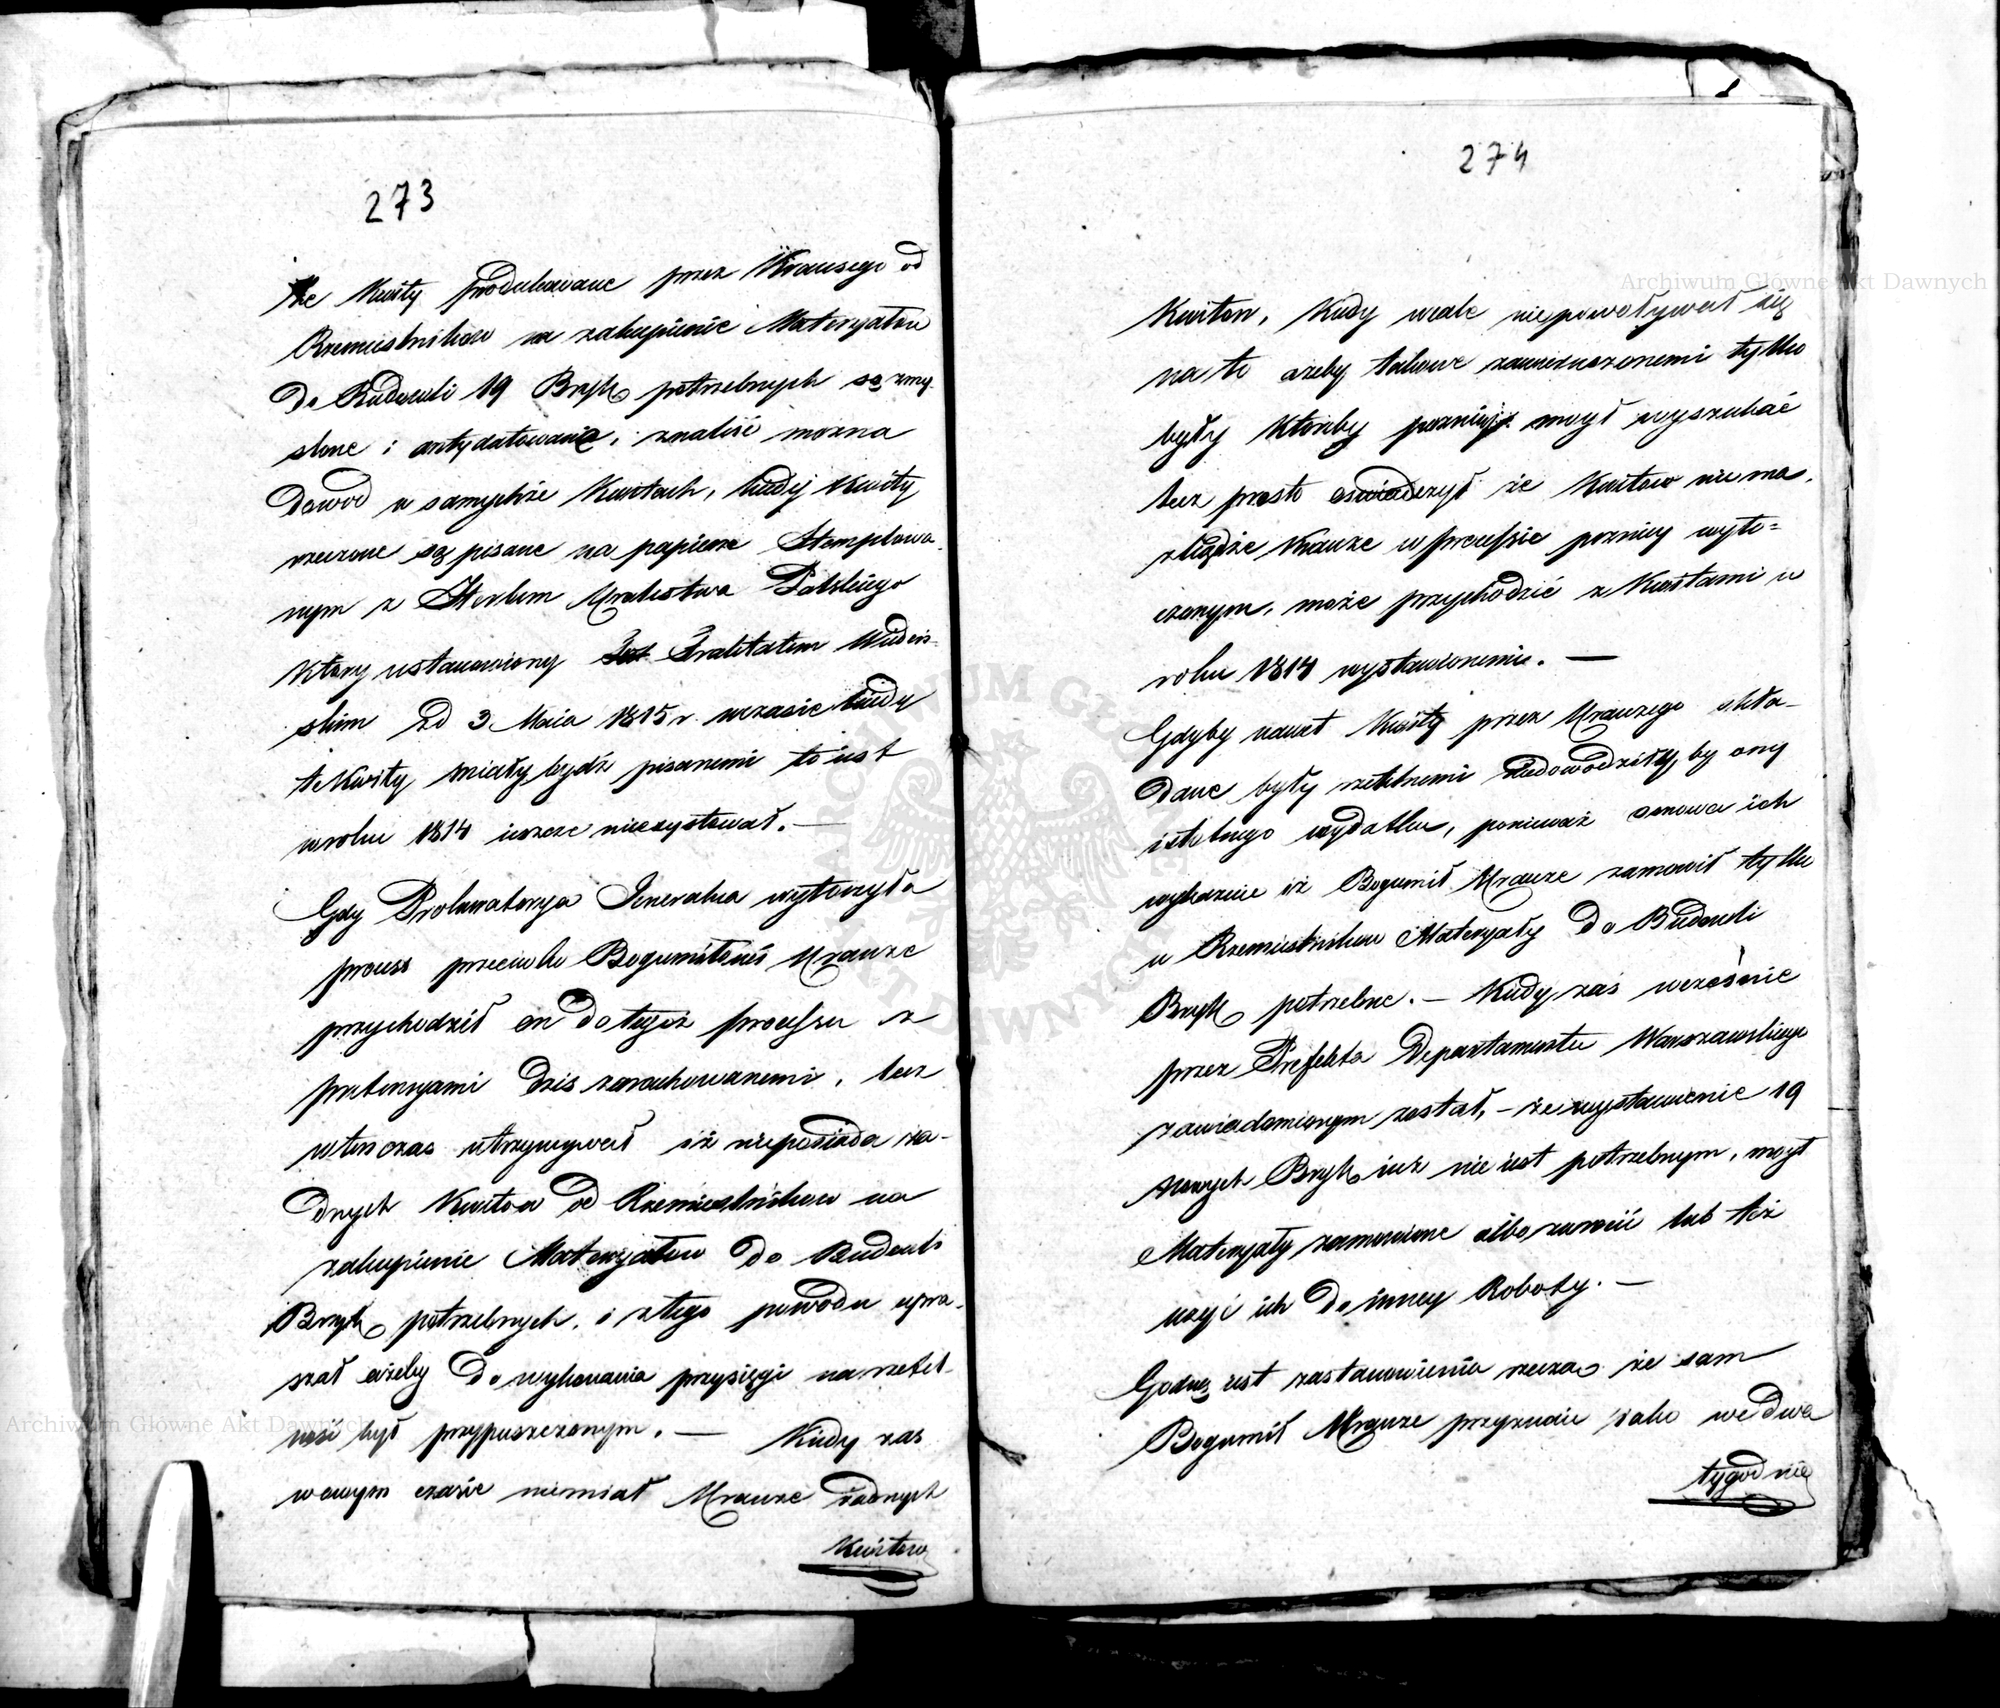 273
że Kwity produkowane przez Krausego od
Rzemieslnikow na zakupienie Materyałow
do Budowli 19 Bryk potrzebnych są zmy-
slone i antydatowanie, znaliść mozna
dowod w samychże Kwitach, kiedy Kwity
rzeczone są pisane na papierze Stemplowa-
nym z Herbem Krolestwa Polskiego
ktory ustanowiony Traktatem Wiedeń-
skim dd 3 Maia 1815 r. wczasie kiedy
te Kwity miały bydź pisanemi to iest
w roku 1814 ieszcze nieexystował. —
Gdy Prokuratorya Jeneralna wytoczyła
process przeciwko Bogumiłowi Krauze
przychodził on do tegoż processu z
pretensyami dzis zarachowanemi, lecz
wtenczas utrzymywał iż nieposiada ża-
dnych Kwitow od Rzemieslnikow na
zakupienie Materyałow do Budowli
Bryk potrzebnych, i z tego powodu upra-
szał ażeby do wykonania przysięgi na rzetel-
nosć był przypuszczonym. — Kiedy zas
w owym czasie niemiał Krauze żadnych
Kwitow
274
Kwitow, Kiedy wcale niepowoływał się
na to ażeby takowe zawieruszonemi tylko
były ktoreby pozniey mogł wyszukać
lecz prosto oswiadczył że Kwitow nie ma,
zkądże Krauze w processie pozniey wyto-
czonym, może przychodzić z Kwitami w
roku 1814 wystawionemi. —
Gdyby nawet Kwity przez Krauzego skła-
dane były rzetelnemi niedowodziłyby ony
istotnego wydatku, ponieważ osnowa ich
wykazuie iż Bogumił Krauze zamowił tylko
u Rzemieslnikow Materyały do Budowli
Bryk potrzebne. — Kiedy zaś wcześnie
przez Prefekta Departamentu Warszawskiego
zawiadomionym został, — że wystawienie 19
nowych Bryk iuż nie iest potrzebnym, mogł
Materyały zamowione albo zwrocić lub też
użyć ich do inney Roboty. —
Godną iest zastanowienia rzeczą że sam
Bogumił Krauze przyznaie iako we dwa
tygodnie
Archiwum Główne Akt Dawnych
Archiwum Główne Akt Dawnych
ARCHIWUM GŁÓWNE AKT DAWNYCH